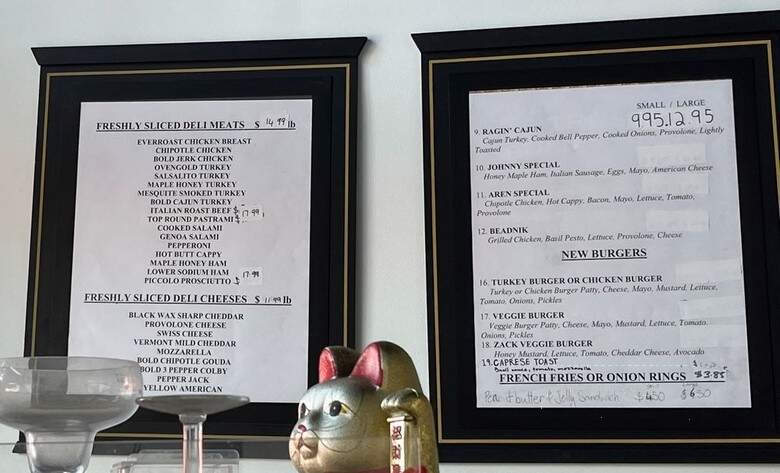 FRESHLY SLICED DELI MEATS $ 14.99 lb
EVERROAST CHICKEN BREAST
CHIPOTLE CHICKEN
BOLD JERK CHICKEN
OVENGOLD TURKEY
SALSALITO TURKEY
MAPLE HONEY TURKEY
MESQUITE SMOKED TURKEY
BOLD CAJUN TURKEY
ITALIAN ROAST BEEF $
TOP ROUND PASTRAMI $ 17.99
COOKED SALAMI
GENOA SALAMI
PEPPERONI
HOT BUTT CAPPY
MAPLE HONEY HAM
LOWER SODIUM HAM
PICCOLO PROSCIUTTO $ 17.99
FRESHLY SLICED DELI CHEESES $ 11.99 lb
BLACK WAX SHARP CHEDDAR
PROVOLONE CHEESE
SWISS CHEESE
VERMONT MILD CHEDDAR
MOZZARELLA
BOLD CHIPOTLE GOUDA
BOLD 3 PEPPER COLBY
PEPPER JACK
YELLOW AMERICAN
SMALL / LARGE
9.95 12.95
9. RAGIN' CAJUN
Cajun Turkey, Cooked Bell Pepper, Cooked Onions, Provolone, Lightly
Toasted
10. JOHNNY SPECIAL
Honey Maple Ham, Italian Sausage, Eggs, Mayo, American Cheese
11. AREN SPECIAL
Chipotle Chicken, Hot Cappy, Bacon, Mayo, Lettuce, Tomato,
Provolone
12. BEADNIK
Grilled Chicken, Basil Pesto, Lettuce, Provolone, Cheese
NEW BURGERS
16. TURKEY BURGER OR CHICKEN BURGER
Turkey or Chicken Burger Patty, Cheese, Mayo, Mustard, Lettuce,
Tomato, Onions, Pickles
17. VEGGIE BURGER
Veggie Burger Patty, Cheese, Mayo, Mustard, Lettuce, Tomato,
Onions, Pickles
18. ZACK VEGGIE BURGER
Honey Mustard, Lettuce, Tomato, Cheddar Cheese, Avocado
19. CAPRESE TOAST
tomato, mozzarella
FRENCH FRIES OR ONION RINGS $3.85
Peanut butter & Jelly Sandwich $4.50 $6.50